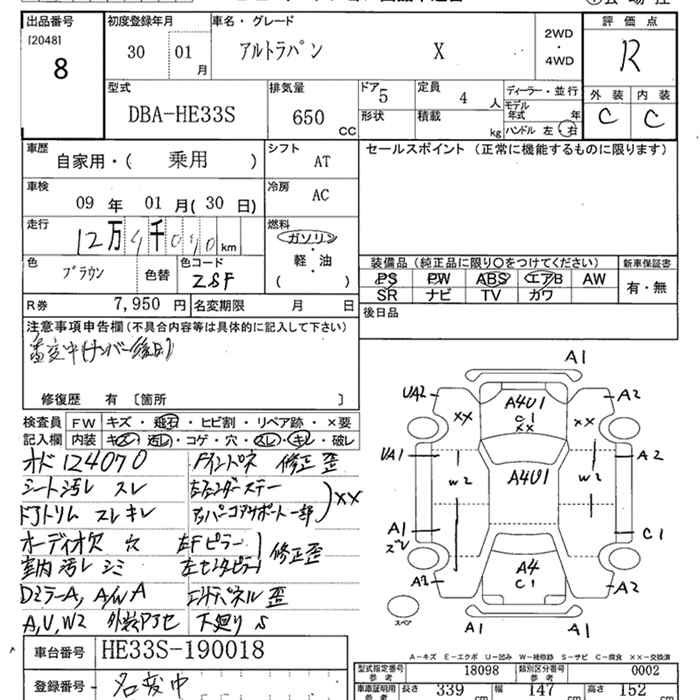 出品番号
[2048]
8
初度登録年月
30 01 月
車名・グレード
アルトラパン X
2WD
・
4WD
評価点
R
外装 内装
C C
型式
DBA-HE33S
排気量
650 CC
ドア 5
形状
定員 4 人
積載 kg
ディーラー・並行
モデル年式 年
ハンドル 左 右
車歴
自家用・( 乗用 )
シフト
AT
セールスポイント (正常に機能するものに限ります)
車検
09 年 01 月( 30 日)
冷房
AC
走行
12万4千070 km
燃料
ガソリン
軽・油
( )
色
ブラウン
色替
色コード
ZSF
装備品 (純正品に限り○をつけてください)
PS PW ABS エアB AW
SR ナビ TV カワ
新車保証書
有・無
R券 7,950 円
名変期限 月 日
後日品
注意事項申告欄(不具合内容等は具体的に記入して下さい)
修復歴 有 [箇所 ]
検査員記入欄
FW キズ・飛石・ヒビ割・リペア跡・×要
内装 キズ・汚レ・コゲ・穴・スレ・キレ・破レ
オド124070
シート汚レ スレ
ドアトリム スレ キレ
オーディオ欠 穴
室内汚レ シミ
DミラーA, A/W A
A,U,W2 外装アセ
修正 歪
左フェンダーステー
右ババコアサポート一部
XX
左Fピラー
左センターピラー
修正歪
エンドパネル 歪
下廻り S
A1
UA2
A4U1
C1
XX
A2
XX
XX
UA1
W2
A4U1
W2
A2
A1
ズレ
C1
A2
A4
C1
A2
スペア
A1
A1
A-キズ E-エクボ U-凹み W-補修跡 S-サビ C-腐食 XX-交換済
車台番号
HE33S-190018
登録番号
名変中
型式指定番号 参考 18098
類別区分番号 参考 0002
車庫証明用 参考
長さ 339 cm
幅 147 cm
高さ 152 cm